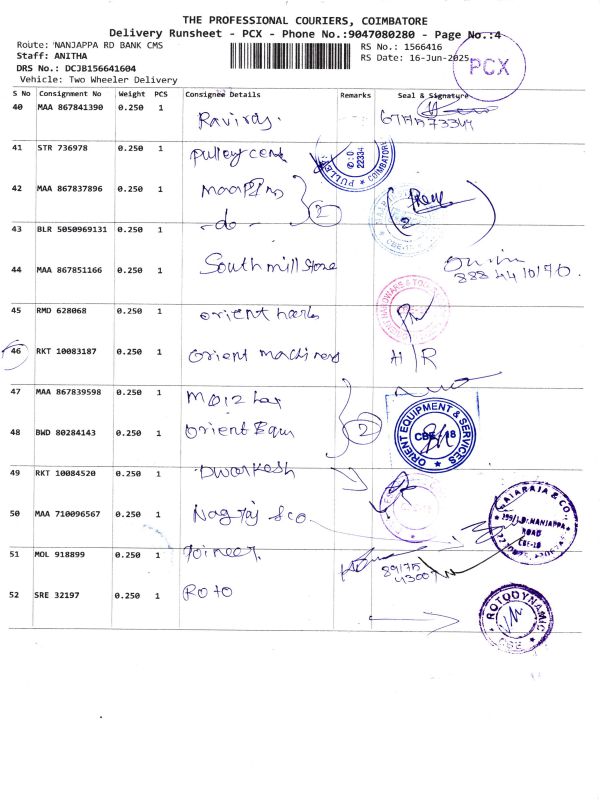 THE PROFESSIONAL COURIERS, COIMBATORE
Delivery Runsheet - PCX - Phone No.:9047080280 - Page No.:4
Route: NANJAPPA RD BANK CMS
RS No.: 1566416
Staff: ANITHA
RS Date: 16-Jun-2025
PCX
DRS No.: DCJB156641604
Vehicle: Two Wheeler Delivery
S No Consignment No Weight PCS Consignee Details Remarks Seal & Signature
40 MAA 867841390 0.250 1
41 STR 736978 0.250 1
PULLEY
22334
COIMBATORE
42 MAA 867837896 0.250 1
2
43 BLR 5050969131 0.250 1 -do-
44 MAA 867851166 0.250 1 South mill Store
45 RMD 628068 0.250 1 orient
46 RKT 10083187 0.250 1 Orient machiners H/R
47 MAA 867839598 0.250 1
48 BWD 80284143 0.250 1 Orient Equi 2
ORIENT EQUIPMENT & SERVICES
CBE-18
49 RKT 10084520 0.250 1 Dwarkesh
50 MAA 710096567 0.250 1 Nagraj &co
NANJAPPA
ROAD
CBE-18
51 MOL 918899 0.250 1
52 SRE 32197 0.250 1 Roto
ROTODYNAMIC
CBE